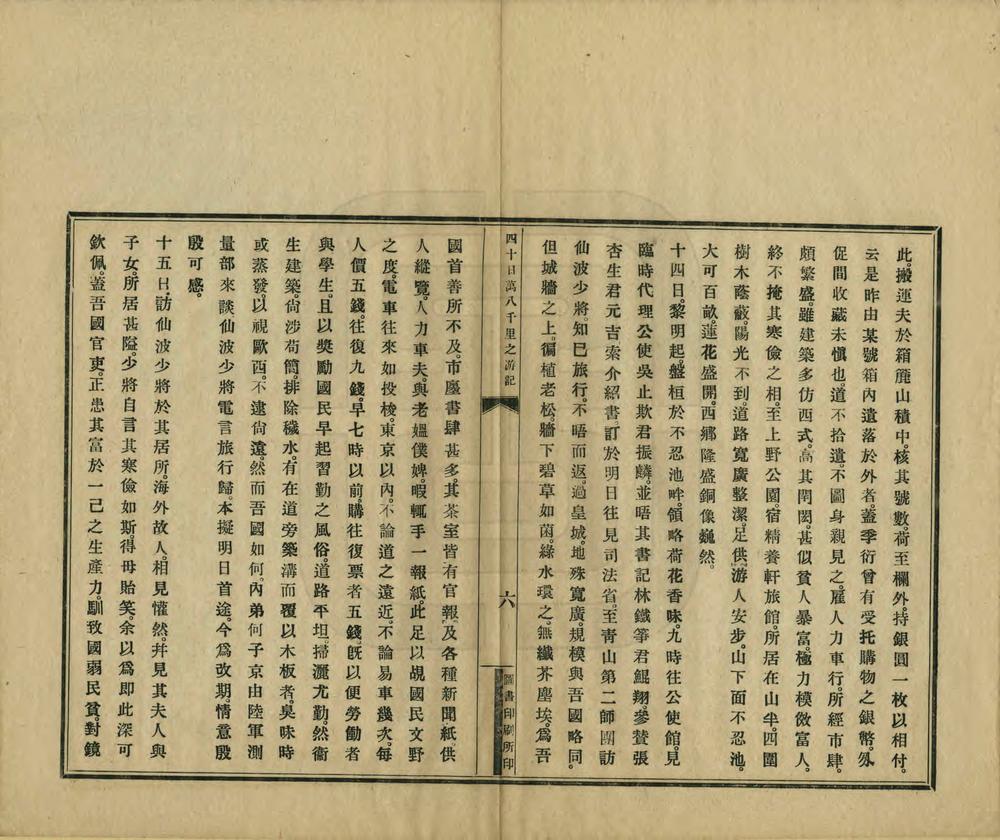 此。搬運夫於箱簏山積中。核其號數。荷至欄外。持銀圓一枚以相付。
云是昨由某號箱內遺落於外者。蓋季衍曾有受托購物之銀幣。匆
促間收藏未愼也。道不拾遺。不圖身親見之。雇人力車行。所經市肆。
頗繁盛。雖建築多仿西式。高其閈閎。甚似貧人暴富。極力模倣富人。
終不掩其寒儉之相。至上野公園。宿精養軒旅館。所居在山半。四圍
樹木蔭蔽。陽光不到。道路寬廣整潔。足供游人安步。山下面不忍池。
大可百畝。蓮花盛開。西鄕隆盛銅像巍然。
十四日。黎明起。盤桓於不忍池畔。領略荷花香味。九時往公使館。見
臨時代理公使吳止欺君振麟。並晤其書記林鐵箏君鯤翔。參贊張
杏生君元吉。索介紹書。訂於明日往見司法省。至靑山第二師團訪
仙波少將。知已旅行。不晤而返。過皇城。地殊寬廣。規模與吾國略同。
但城牆之上。徧植老松。牆下碧草如茵。綠水環之。無纖芥塵埃。爲吾
四十日萬八千里之游記
六
圖書印刷所印
國首善所不及。市廛書肆甚多。其茶室皆有官報。及各種新聞紙。供
人縱覽。人力車夫。與老媼僕婢。暇輒手一報紙。此足以覘國民文野
之度。電車往來如投梭。東京以內。不論道之遠近。不論易車幾次。每
人價五錢。往復九錢。早七時以前。購往復票者五錢。旣以便勞働者
與學生。且以獎勵國民早起習勤之風俗。道路平坦。掃灑尤勤。然衞
生建築。尙涉苟簡。排除穢水。有在道旁築溝而覆以木板者。臭味時
或蒸發。以視歐西。不逮尙遠。然而吾國如何。內弟何子京由陸軍測
量部來談仙波少將電言旅行歸。本擬明日首途。今爲改期情意殷
殷可感。
十五日。訪仙波少將於其居所。海外故人。相見懽然。幷見其夫人與
子女。所居甚隘。少將自言其寒儉如斯。得毋貽笑。余以爲卽此深可
欽佩。蓋吾國官吏。正患其富於一己之生產力。馴致國弱民貧。對鏡